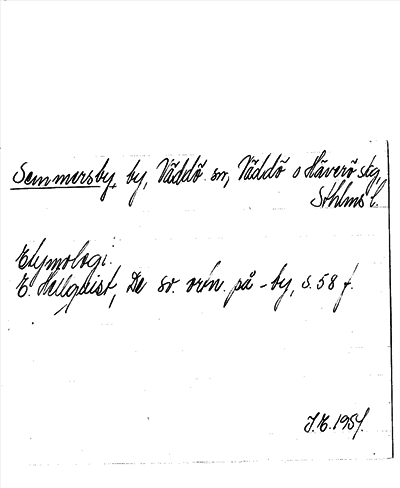 Semmersby, by, Väddö sn, Väddö o Häverö skg,
Sthlms l.
Etymologi:
E. Hellquist, De sv. ortn. på -by, s. 58 f.
J.E. 1951.